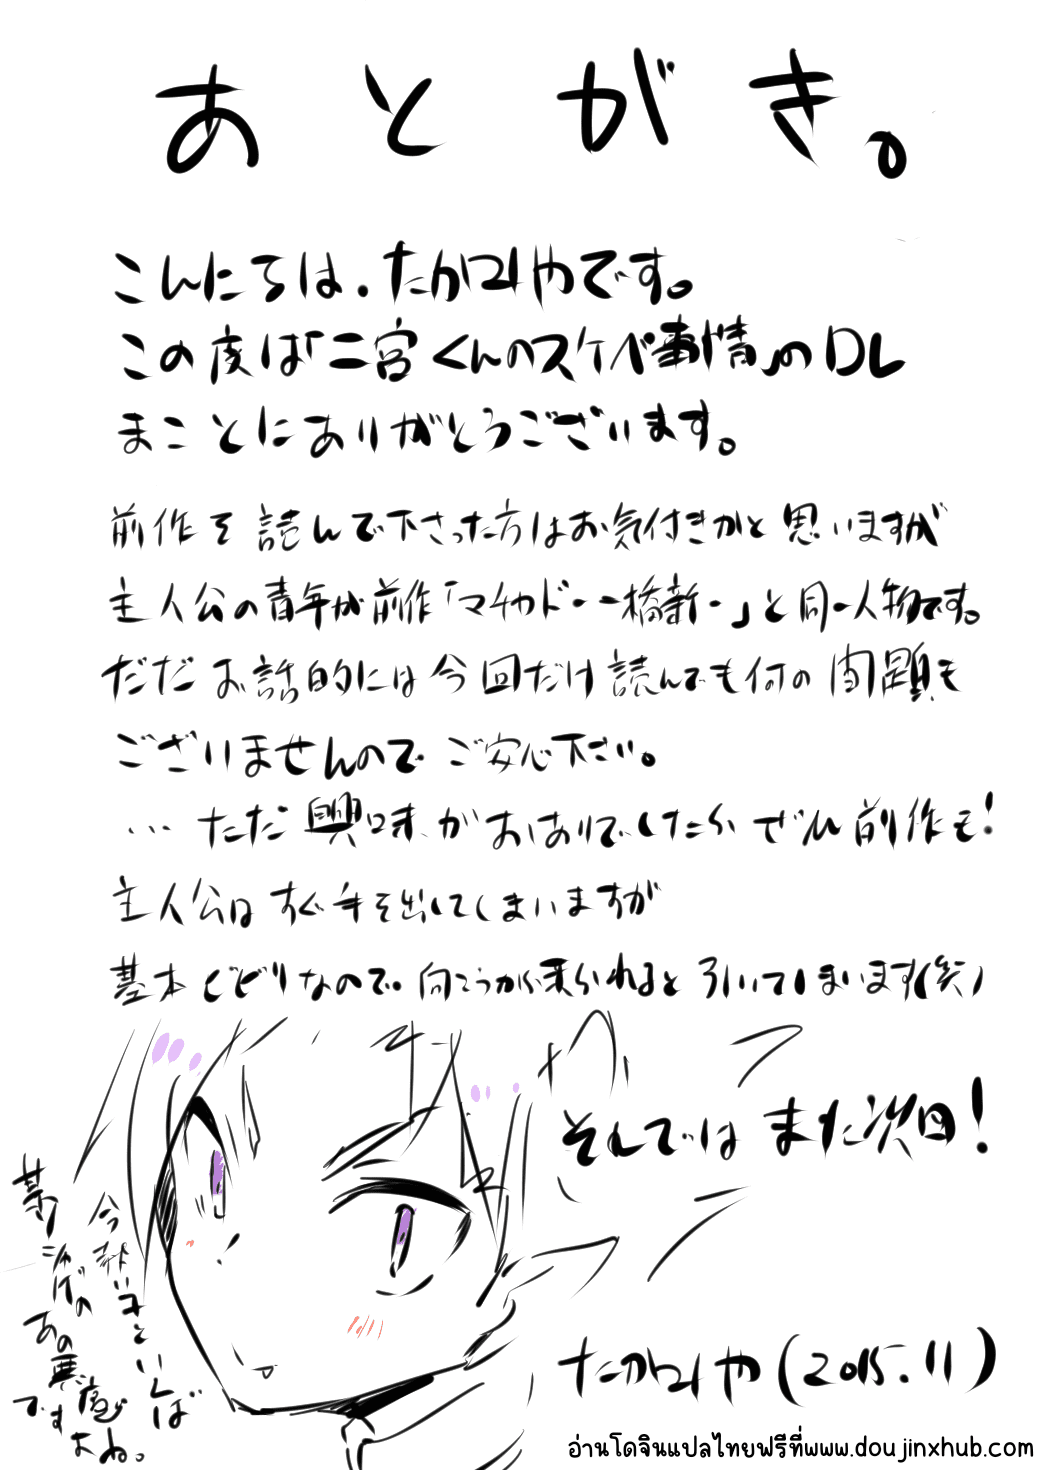 あとがき。
こんにちは、たかコリやです。
この度は「二宮くんのスケベ事情」のDL
まことにありがとうございます。
前作を読んで下さった方はお気付きかと思いますが
主人公の青年が前作「マチカドー一橋新一」と同一人物です。
だだお話的には今回だけ読んでも何の問題も
ございませんのでご安心下さい。
…ただ興味がおありでしたらぜひ前作も!
主人公はすぐ手を出してしまいますが
基本ビビりなので、向こうから来られると引いてしまいます(笑)
それではまた次回!
今熱い子といえば
某ジャゲの
あの悪魔
ですよね。
たかコリや(2015.11)
อ่านโดจินแปลไทยฟรีที่www.doujinxhub.com